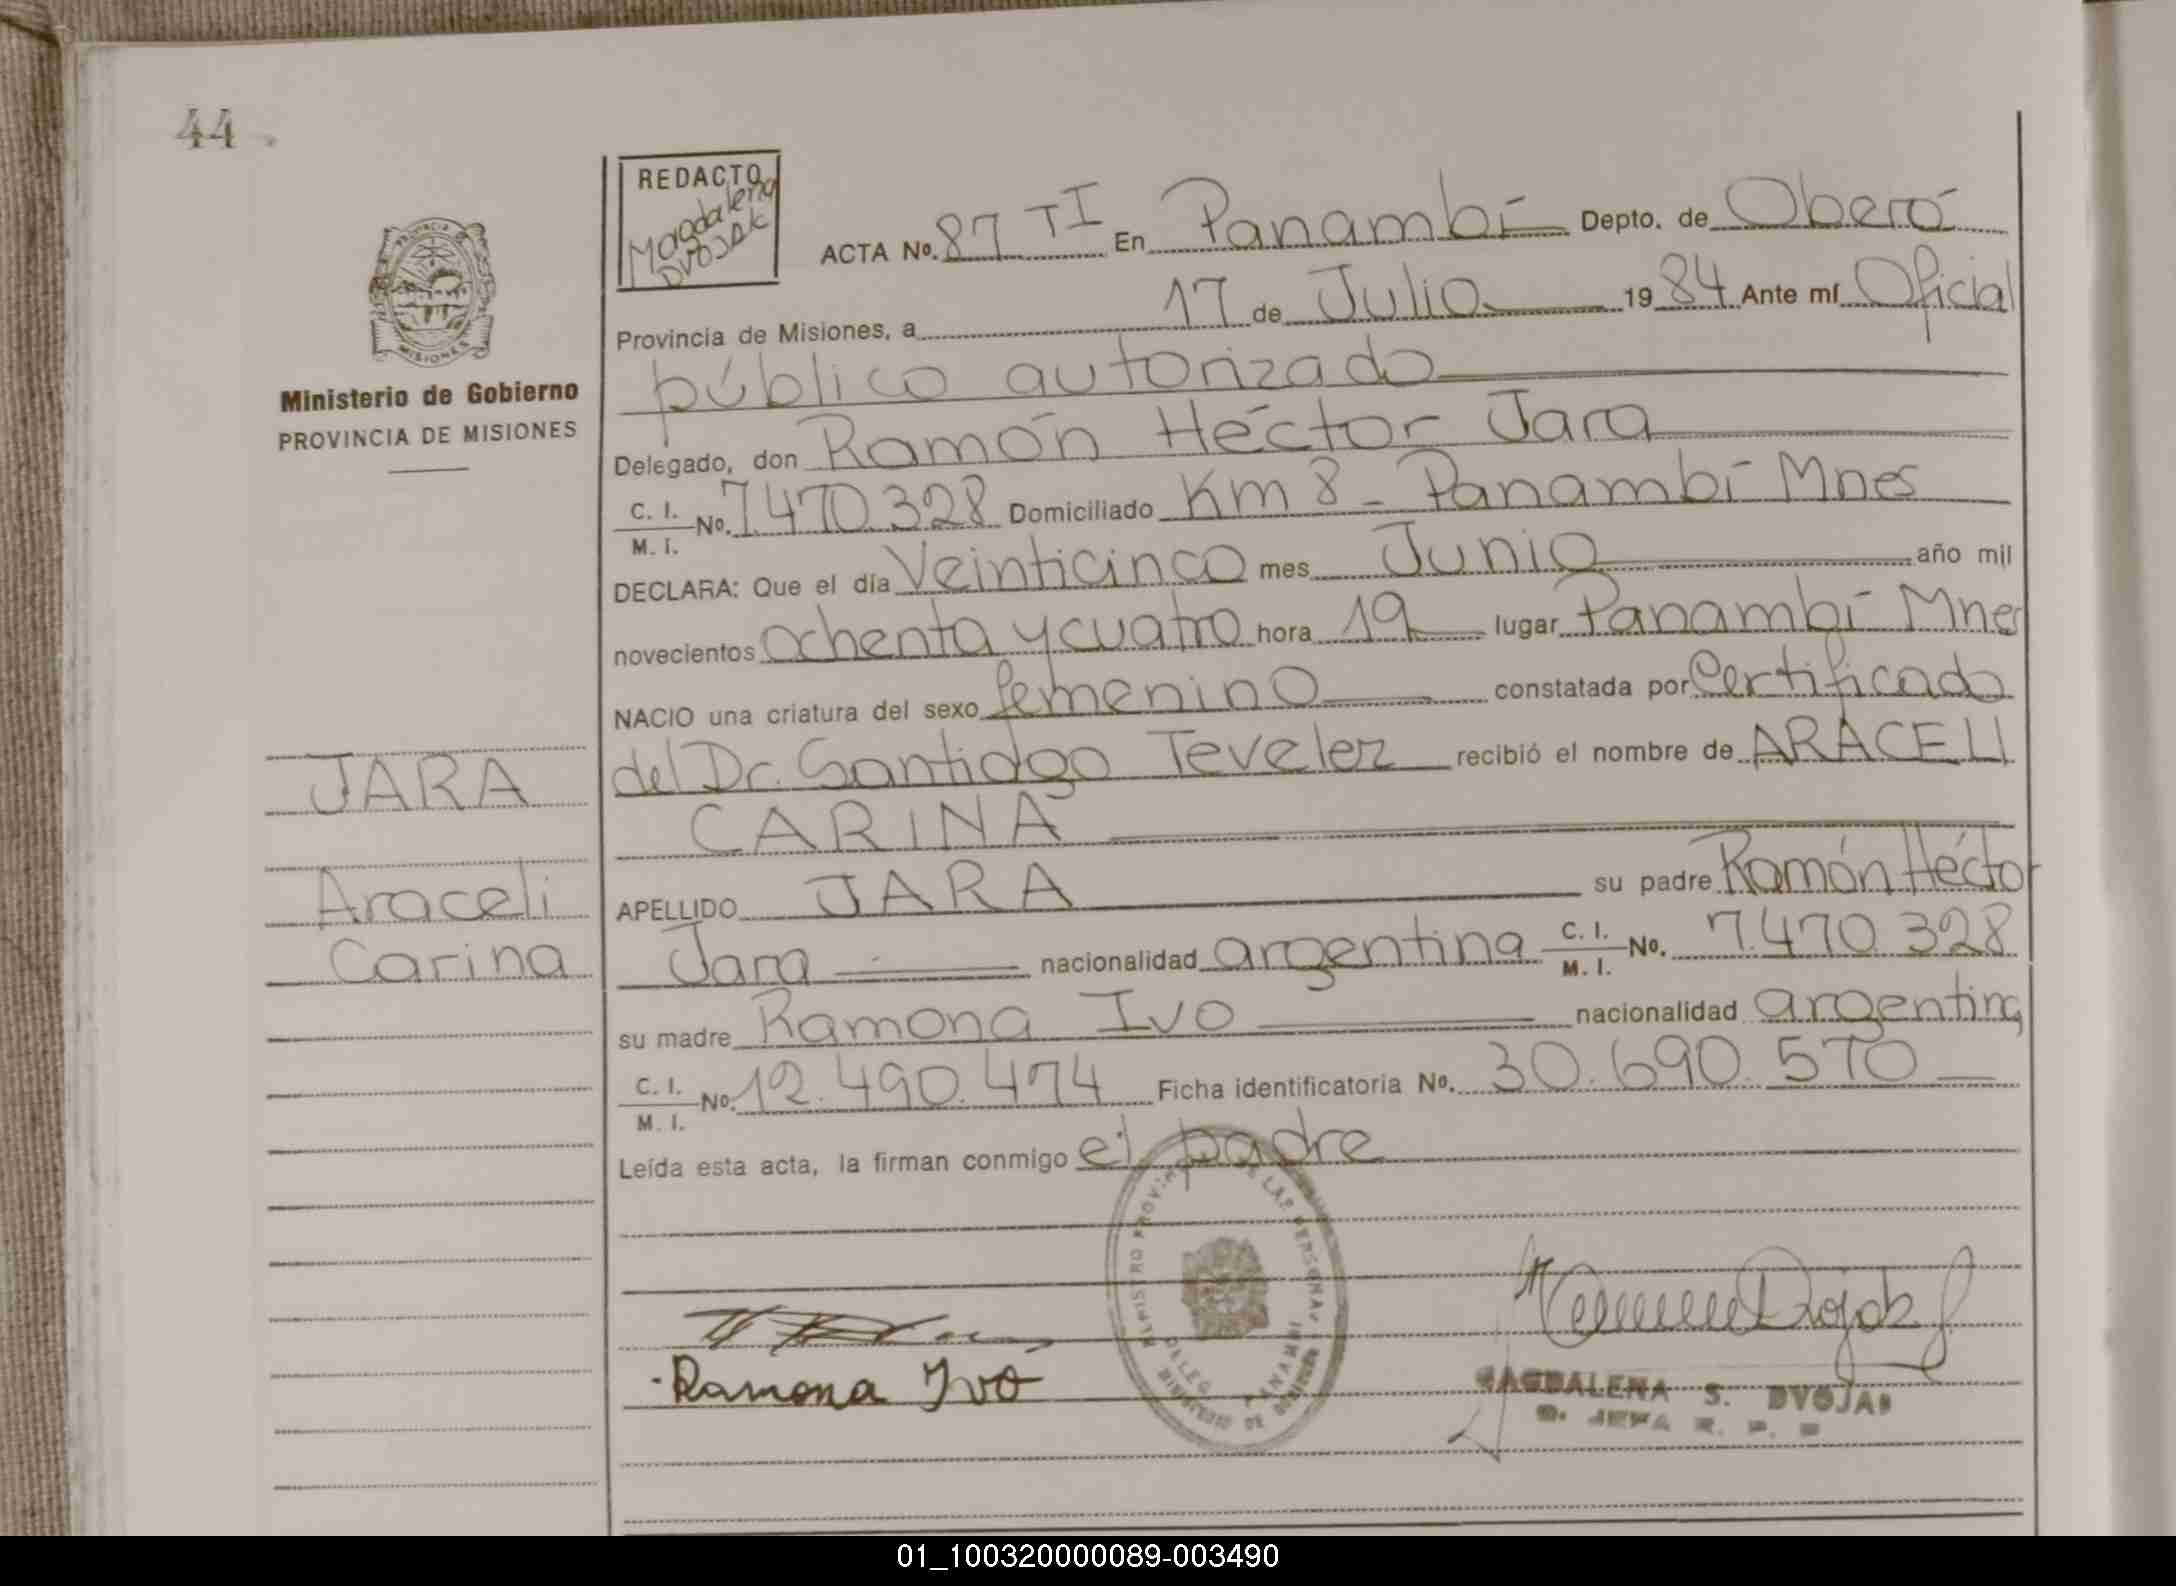 44
REDACTO
Magdalena
DVOJAK
ACTA No. 87 TI En Panambí Depto. de Oberá
Provincia de Misiones, a 17 de Julio 1984 Ante mí Oficial
público autorizado
Delegado, don Ramón Héctor Jara
C. I. / M. I. No. 7.470.328 Domiciliado Km 8 - Panambí Mnes
DECLARA: Que el día Veinticinco mes Junio año mil
novecientos ochenta y cuatro hora 19 lugar Panambí Mnes
NACIO una criatura del sexo femenino constatada por Certificado
del Dr. Santiago Teveler recibió el nombre de ARACELI
CARINA
APELLIDO JARA su padre Ramón Héctor
Jara nacionalidad argentina C. I. / M. I. No. 7.470.328
su madre Ramona Ivo nacionalidad argentina
C. I. / M. I. No. 12.490.474 Ficha identificatoria No. 30.690.570
Leída esta acta, la firman conmigo el padre
PROVINCIA
MISIONES
Ministerio de Gobierno
PROVINCIA DE MISIONES
JARA
Araceli
Carina
REGISTRO PROVINC LAS PERSONAS
DELEG PANAMBI
MINISTERIO DE GOBIERNO
Ramona Ivo
MAGDALENA S. DVOJAK
JEFA R. P.
01_100320000089-003490